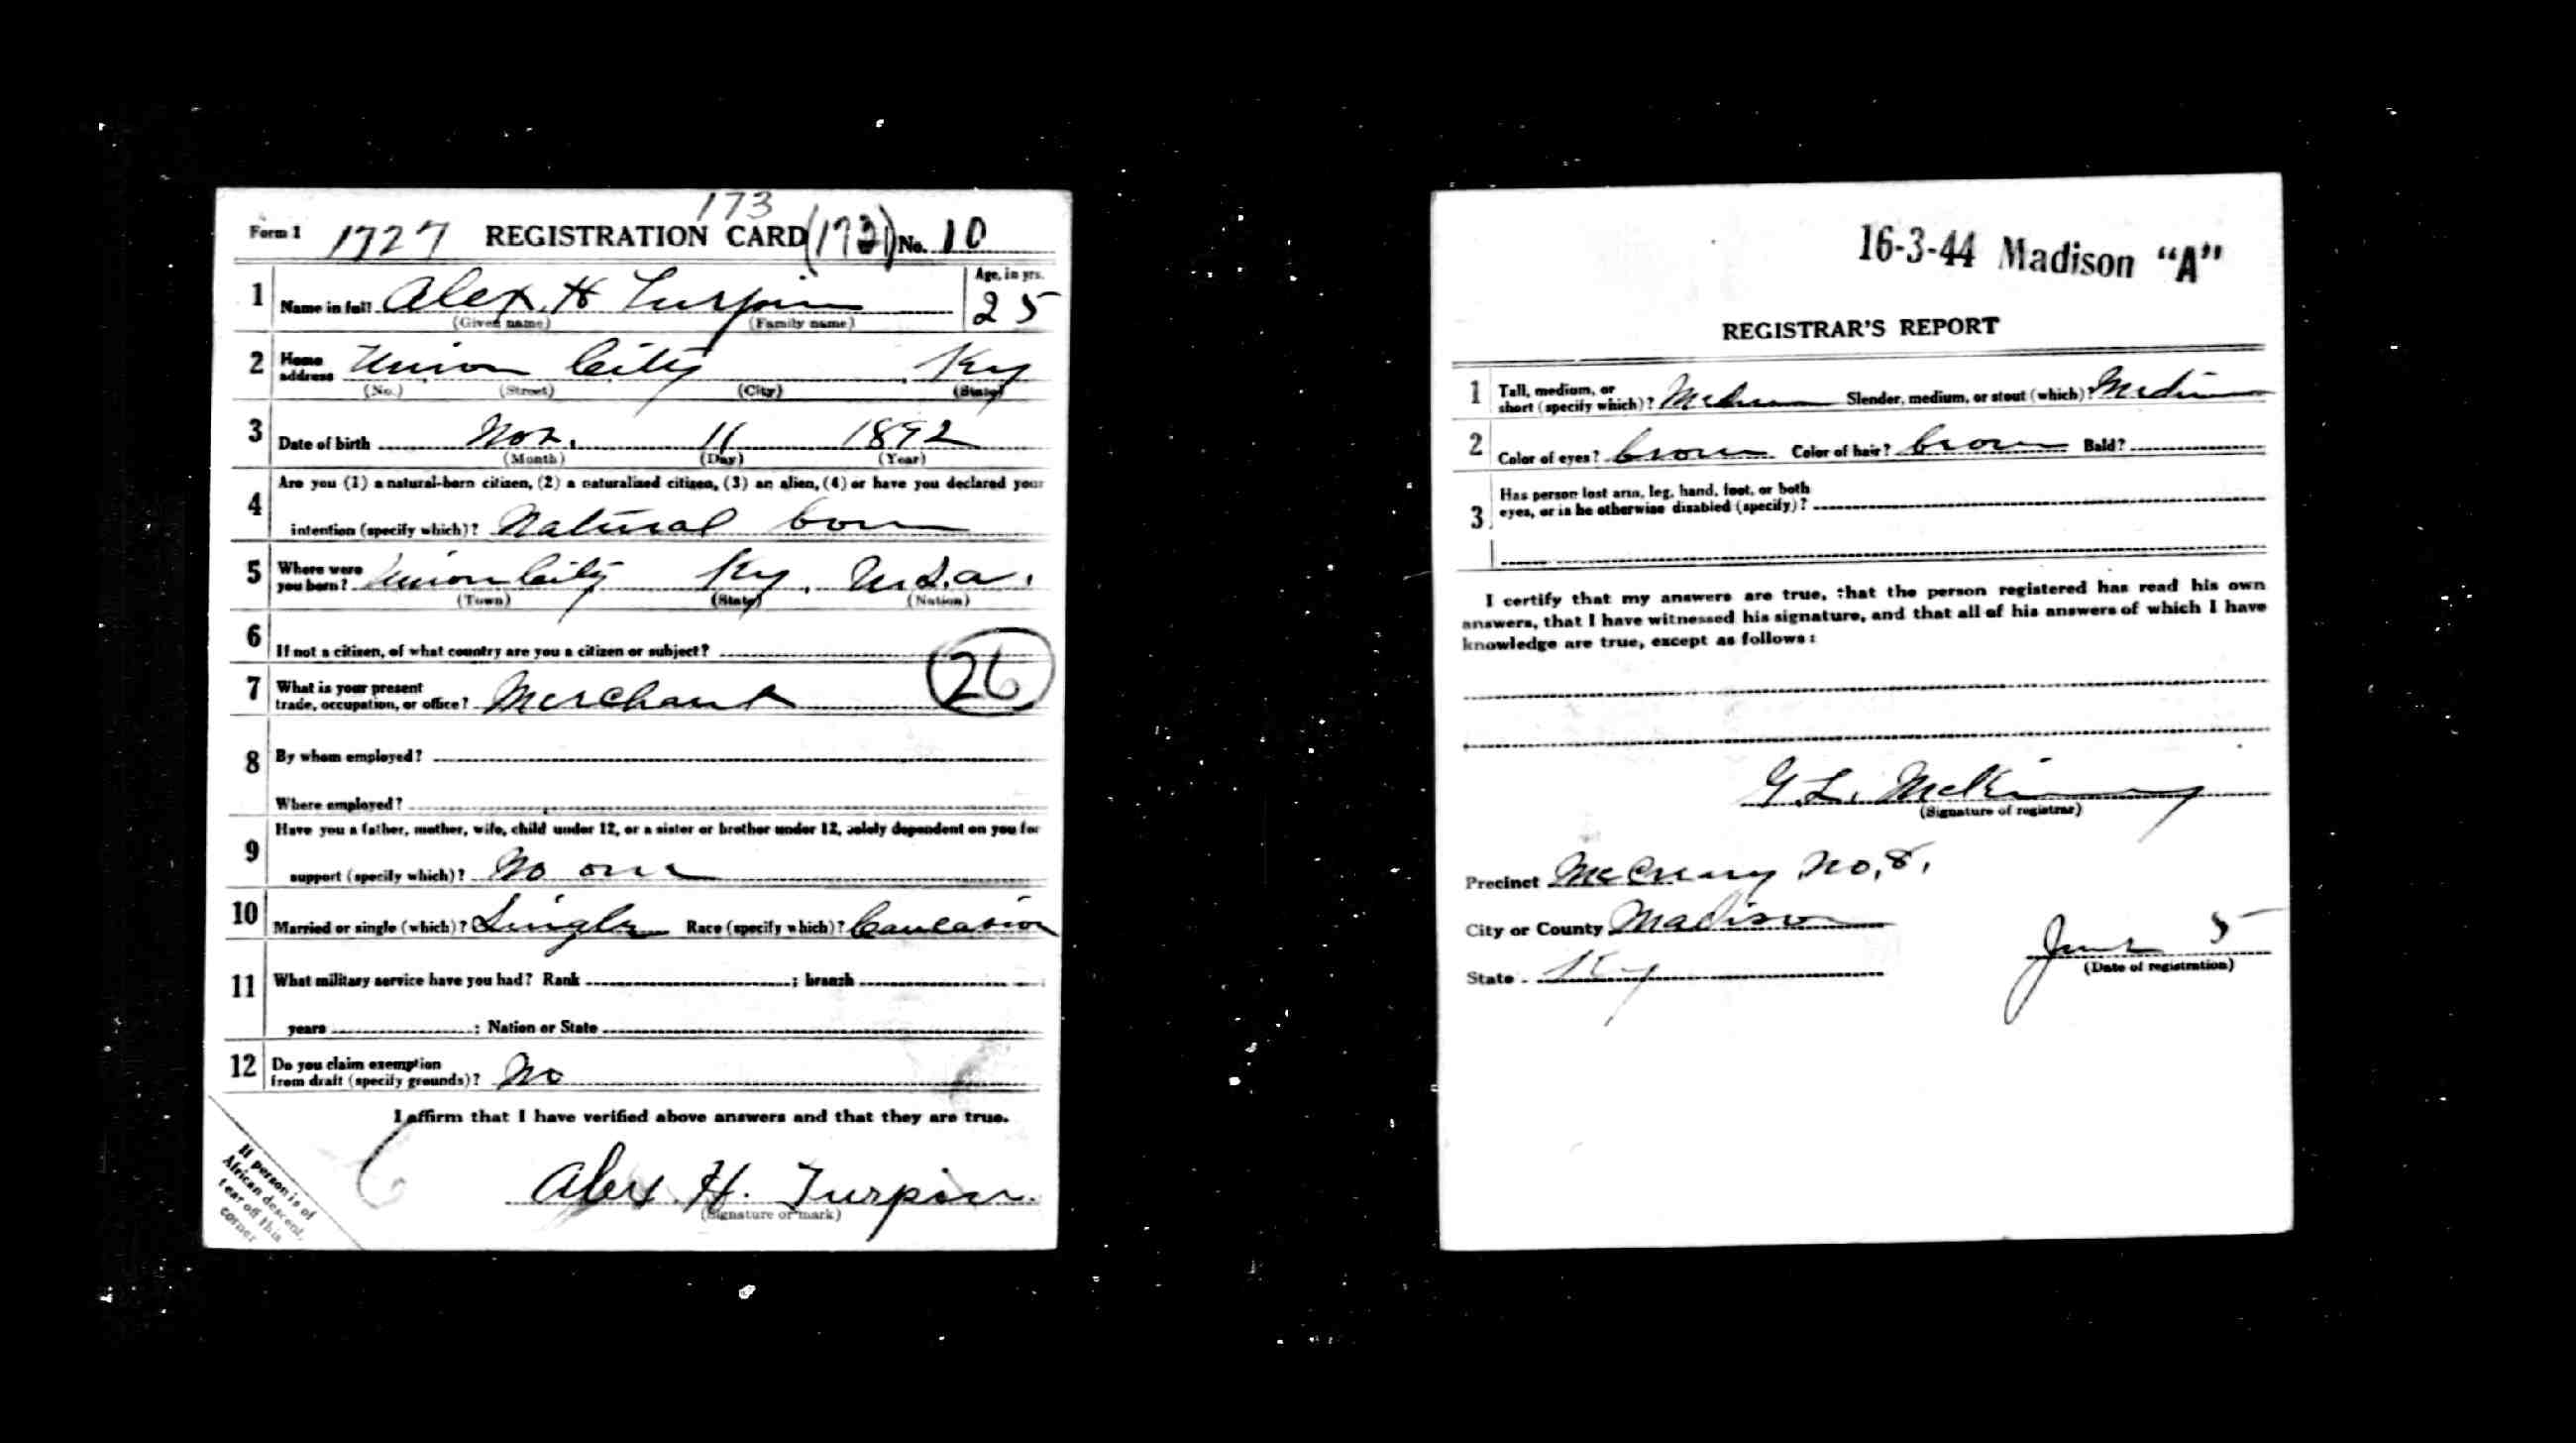 173
Form 1 1727 REGISTRATION CARD No. 10
1 Name in full Alex. H Turpin Age, in yrs. 25
(Given name) (Family name)
2 Home address Union City Ky
(No.) (Street) (City) (State)
3 Date of birth Nov. 11 1892
(Month) (Day) (Year)
4 Are you (1) a natural-born citizen, (2) a naturalized citizen, (3) an alien, (4) or have you declared your
intention (specify which)? Natural born
5 Where were you born? Union City Ky, U.S.a.
(Town) (State) (Nation)
6 If not a citizen, of what country are you a citizen or subject?
26
7 What is your present trade, occupation, or office? Merchant
8 By whom employed?
Where employed?
9 Have you a father, mother, wife, child under 12, or a sister or brother under 12, solely dependent on you for
support (specify which)? No one
10 Married or single (which)? Single Race (specify which)? Caucasion
11 What military service have you had? Rank ; branch
years ; Nation or State
12 Do you claim exemption from draft (specify grounds)? No
I affirm that I have verified above answers and that they are true.
Alex. H. Turpin.
(Signature or mark)
If person is of
African descent,
tear off this
corner
16-3-44 Madison "A"
REGISTRAR'S REPORT
1 Tall, medium, or short (specify which)? Medium Slender, medium, or stout (which)? Medium
2 Color of eyes? brown Color of hair? brown Bald?
3 Has person lost arm, leg, hand, foot, or both
eyes, or is he otherwise disabled (specify)?
I certify that my answers are true, that the person registered has read his own
answers, that I have witnessed his signature, and that all of his answers of which I have
knowledge are true, except as follows:
G. L. McKinney
(Signature of registrar)
Precinct McCreary No. 8.
City or County Madison
State Ky
June 5
(Date of registration)